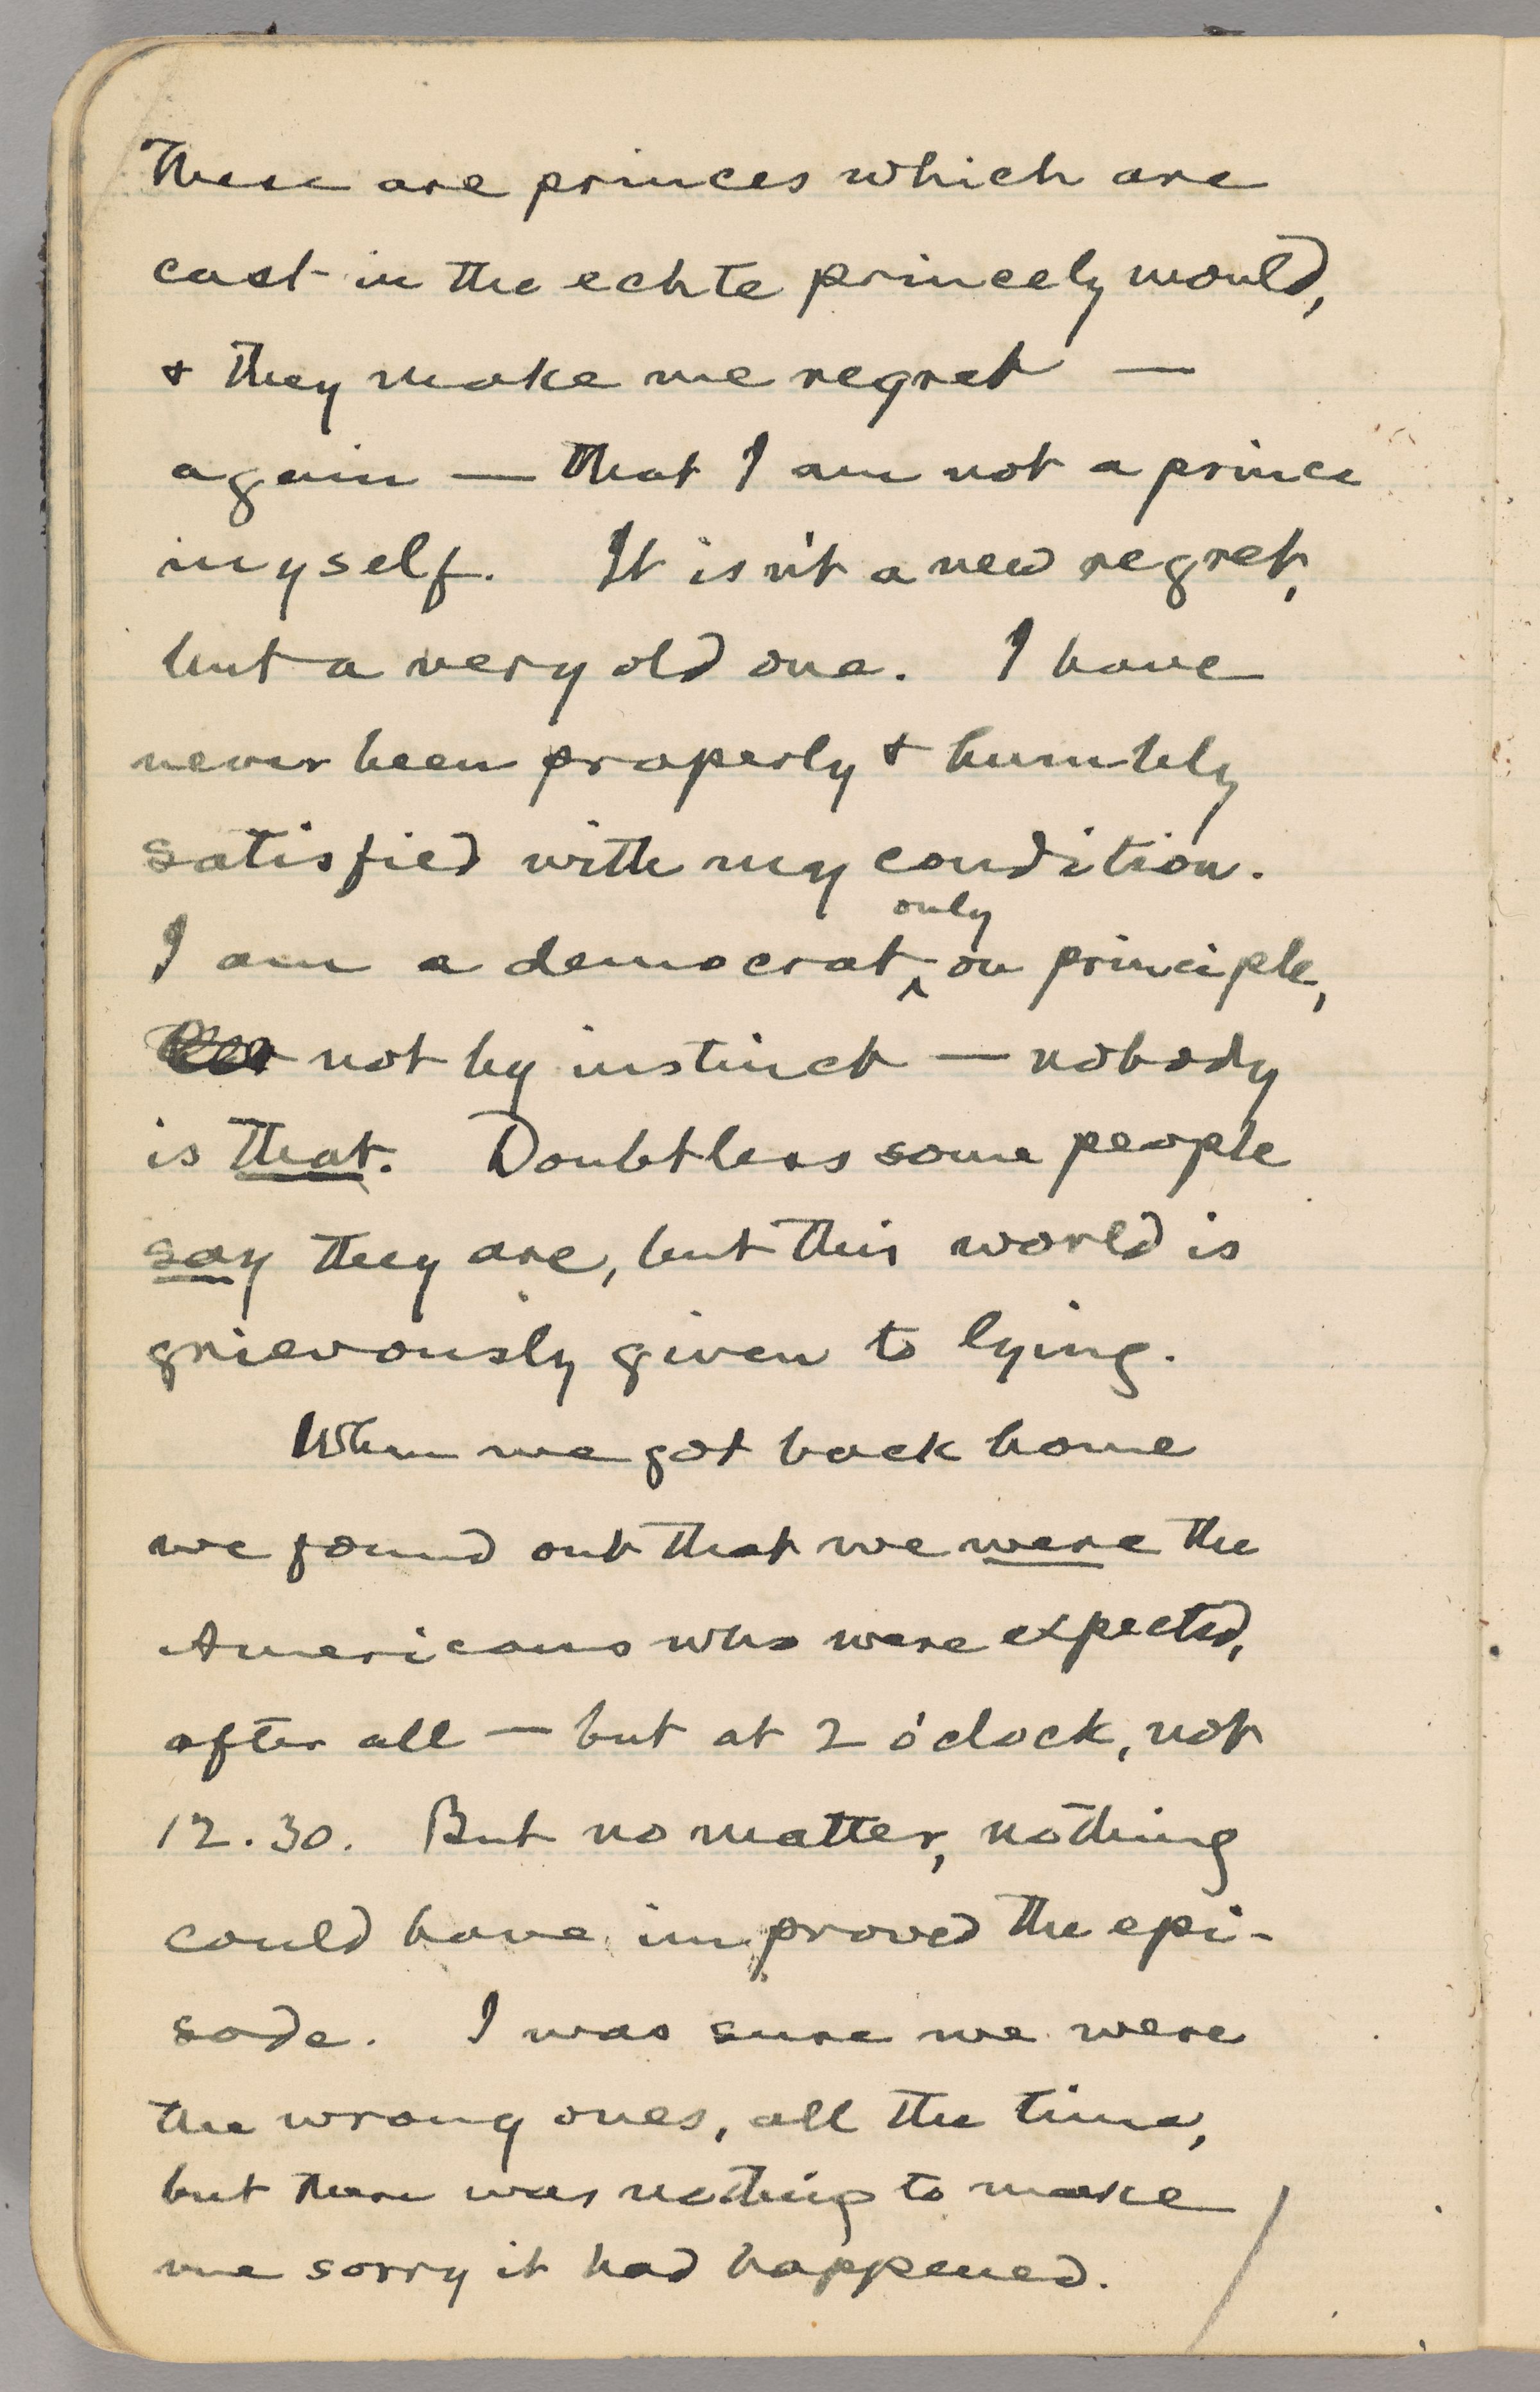 These are princes which are
cast in the echte princely mould,
& they make me regret —
again — that I am not a prince
myself. It isn't a new regret,
but a very old one. I have
never been properly & humbly
satisfied with my condition.
only
I am a democrat ‸ on principle,
not by instinct — nobody
is that. Doubtless some people
say they are, but this world is
grievously given to lying.
When we got back home
we found out that we were the
Americans who were expected,
after all — but at 2 o'clock, not
12.30. But no matter, nothing
could have improved the epi-
sode. I was sure we were
the wrong ones, all the time,
but there was nothing to make
me sorry it had happened.